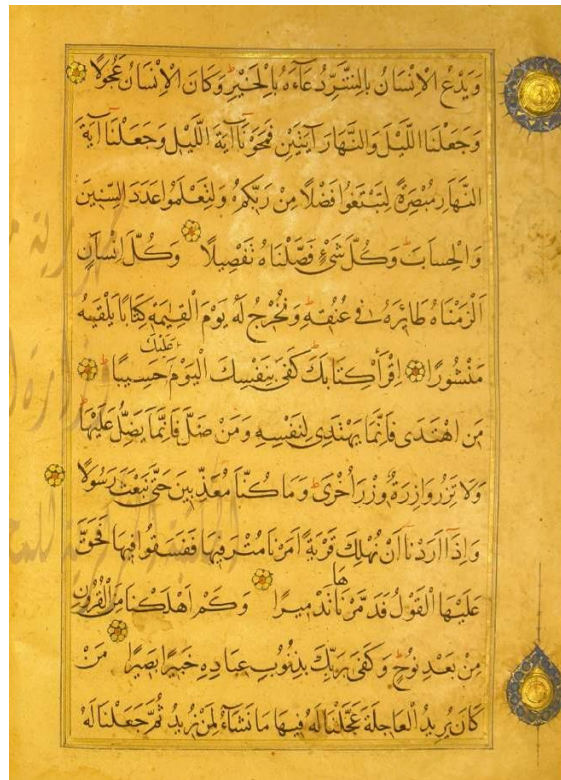 وَيَدْعُ الْاِنْسَانُ بِالشَّرِّ دُعَاءَهُ بِالْخَيْرِ وَكَانَ الْاِنْسَانُ عَجُولًا
وَجَعَلْنَا اللَّيْلَ وَالنَّهَارَ آيَتَيْنِ فَمَحَوْنَا آيَةَ اللَّيْلِ وَجَعَلْنَا آيَةَ
النَّهَارِ مُبْصِرَةً لِتَبْتَغُوا فَضْلًا مِنْ رَبِّكُمْ وَلِتَعْلَمُوا عَدَدَ السِّنِينَ
وَالْحِسَابَ وَكُلَّ شَيْءٍ فَصَّلْنَاهُ تَفْصِيلًا وَكُلَّ اِنْسَانٍ
اَلْزَمْنَاهُ طَائِرَهُ فِي عُنُقِهِ وَنُخْرِجُ لَهُ يَوْمَ الْقِيٰمَةِ كِتَابًا يَلْقٰيهُ
مَنْشُورًا اِقْرَأْ كِتَابَكَ كَفَى بِنَفْسِكَ الْيَوْمَ عَلَيْكَ حَسِيبًا
مَنِ اهْتَدَى فَاِنَّمَا يَهْتَدِي لِنَفْسِهِ وَمَنْ ضَلَّ فَاِنَّمَا يَضِلُّ عَلَيْهَا
وَلَا تَزِرُ وَازِرَةٌ وِزْرَ اُخْرَى وَمَا كُنَّا مُعَذِّبِينَ حَتَّى نَبْعَثَ رَسُولًا
وَاِذَا اَرَدْنَا اَنْ نُهْلِكَ قَرْيَةً اَمَرْنَا مُتْرَفِيهَا فَفَسَقُوا فِيهَا فَحَقَّ
عَلَيْهَا الْقَوْلُ فَدَمَّرْنَاهَا تَدْمِيرًا وَكَمْ اَهْلَكْنَا مِنَ الْقُرُونِ
مِنْ بَعْدِ نُوحٍ وَكَفَى بِرَبِّكَ بِذُنُوبِ عِبَادِهِ خَبِيرًا بَصِيرًا مَنْ
كَانَ يُرِيدُ الْعَاجِلَةَ عَجَّلْنَا لَهُ فِيهَا مَا نَشَاءُ لِمَنْ نُرِيدُ ثُمَّ جَعَلْنَا لَهُ